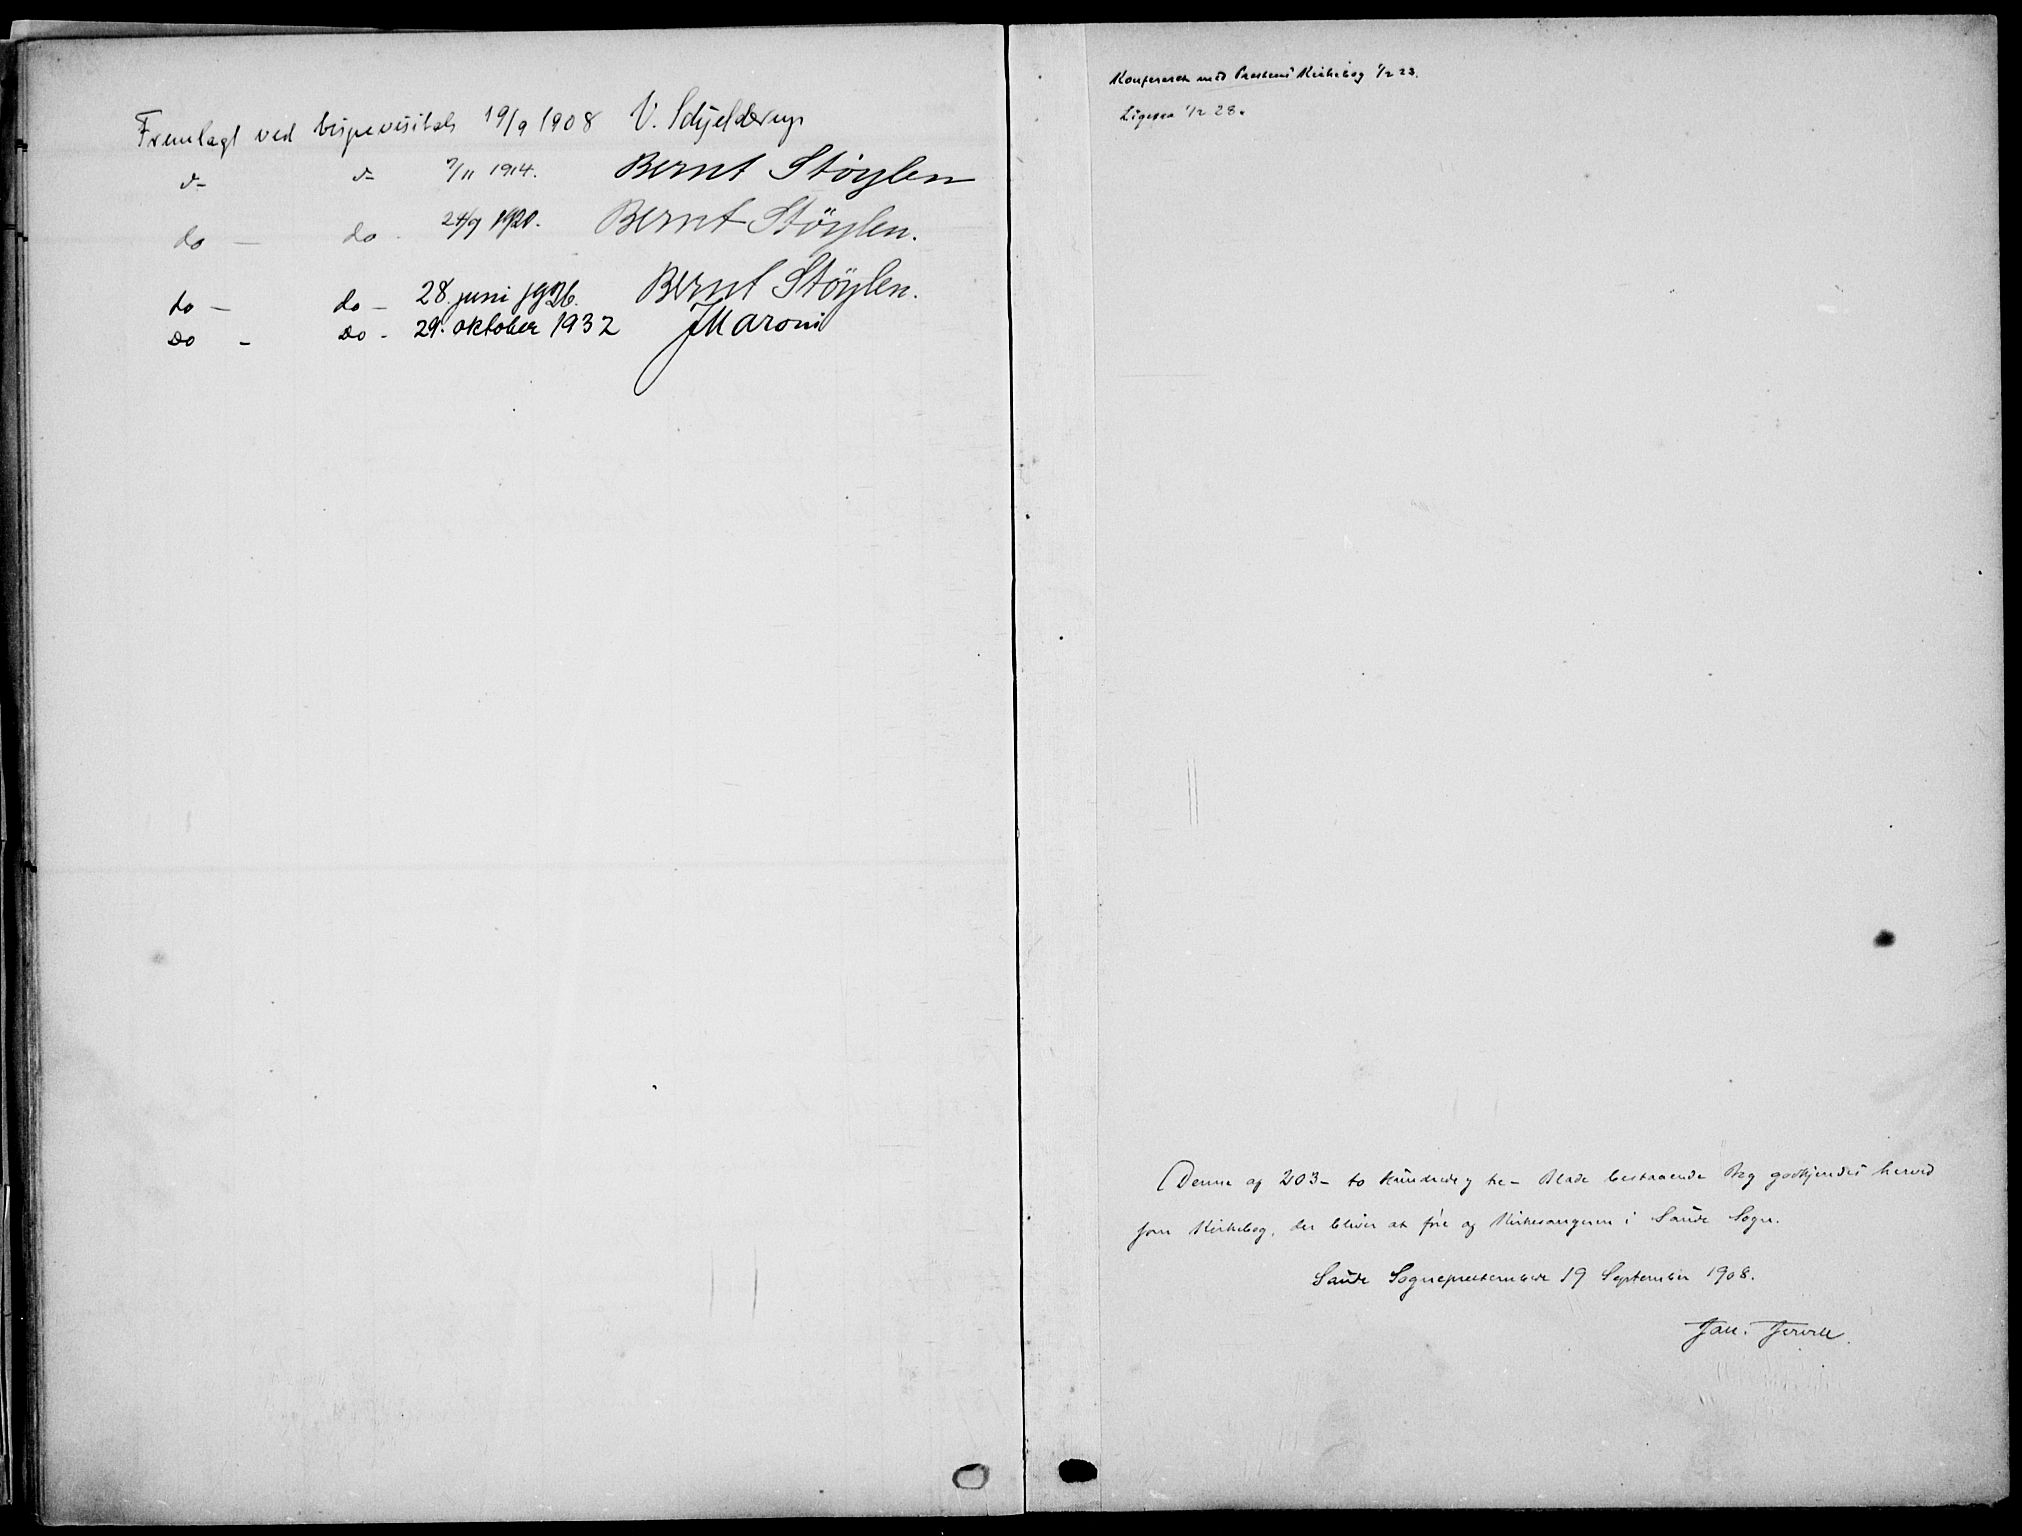 Fremlagt ved bispevisitats 19/9 1908 V. Schjelderup
d- d- 7/11 1914. Bernt Støylen
do - do - 24/9 1920. Bernt Støylen.
do - do - 28. juni 1926. Bernt Støylen.
Do - Do - 29. oktober 1932 JMaroni
Konfereret med Prestens Kirkebog 1/2 23.
Ligesaa 1/2 28.
Denne af 203 - to hundrede og tre - Blade bestaaende Bog godkjendes herved
som Kirkebog, der bliver at føre af Kirkesangeren i Saude Sogn.
Saude Sogneprestembede 19 September 1908.